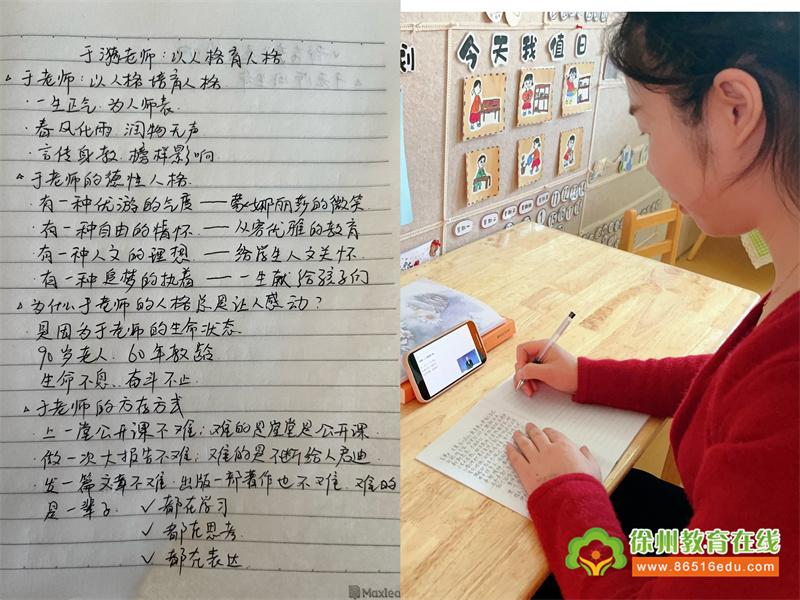 于漪老师：以人格育人格
于老师：以人格培育人格
· 一生正气 为人师表
· 春风化雨 润物无声
· 言传身教 榜样影响
于老师的德性人格
· 有一种优游的气度——蒙娜丽莎的微笑
· 有一种自由的情怀——从容优雅的教育
· 有一种人文的理想——给学生人文关怀
· 有一种追梦的执着——一生献给孩子们
为什么于老师的人格总是让人感动？
是因为于老师的生命状态
90岁老人. 60年教龄
生命不息. 奋斗不止.
于老师的存在方式
· 上一堂公开课不难；难的是堂堂是公开课
· 做一次大报告不难；难的是不断给人启迪
· 发一篇文章不难. 出版一部著作也不难. 难的
是一辈子. ✓ 都在学习
✓ 都在思考.
✓ 都在表达.
Maxlea
到
今天我值日
徐州教育在线
www.86516edu.com